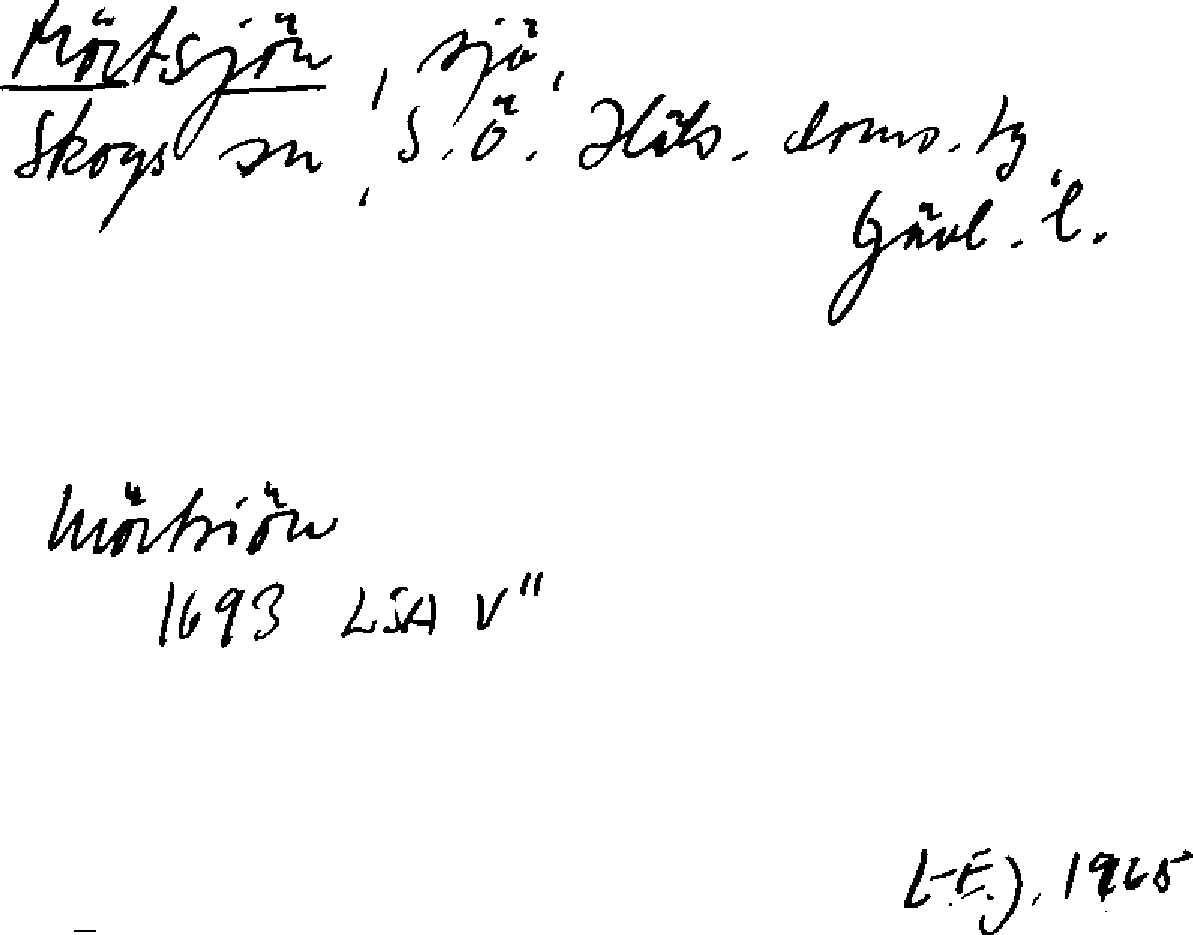 Mörtsjön, sjö,
Skogs sn, S. Ö. Häls. doms. tg,
Gävl. l.
Mörtsiön
1693 LSA V"
L-EJ, 1965